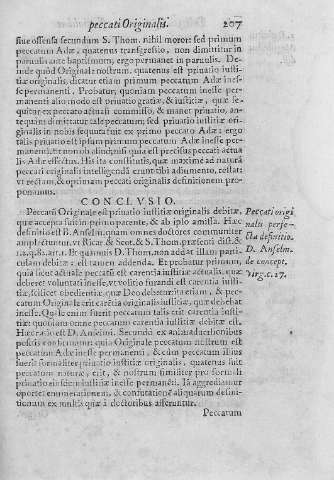 peccati Originalis. 207
siue offensa secundum S. Thom. nihil moror: sed primum
peccatum Adæ, quatenus transgressio, non dimittitur in
paruulis ante baptismum, ergo permanet in paruulis. De
inde quòd Originale nostrum, quatenus est priuatio iusti
tiæ originalis, dicatur etiam primum peccatum Adæ ines
se permanenti. Probatur, quoniam peccatum inesse per
manenti alio modo est priuatio gratiæ, & iustitiæ, quæ se
quitur ex peccato actuali commisso, & manet priuatio, an
te quàm dimittatur tale peccatum; sed priuatio iustitiæ ori
ginalis in nobis sequuta fuit ex primo peccato Adæ: ergo
talis priuatio est ipsum primum peccatum Adæ inesse per-
manenti,
Adæ effectus. His ita constitutis, quæ maximè ad naturã
peccati originalis intelligendã erunt tibi adiumento, restat:
vt rectam, & optimam peccati originalis definitionem pro
ponamus.
CONCLVSIO.
Peccatũ Originale est priuatio iustitiæ originalis debitæ,
quæ accepta fuit in primo parente, & ab ipso amissa. Hæc
definitio est B. Anselmi, quam omnes doctores communiter
amplectuntur, vt Ricar. & Scot. & S. Thom. præsenti dist. &
1.2.q.82.art.1. Et quamuis D. Thom. non addat illam parti-
culam debitæ: est tamen addenda. Et probatur primum,
quia sicut actuale peccatũ est carentia iustitiæ actualis, quæ
deberet voluntati inesse, vt volitio furandi est carentia iusti
tiæ, scilicet obedientiæ, quæ Deo debetur: ita etiam, & pec-
catum Originale erit carẽtia originalis iustitiæ, quæ debebat
inesse. Quòd enim fuerit peccatum talis erit carentia iusti-
tiæ: quoniam omne peccatum carentia iustitiæ debitæ est.
Hæc ratio est D. Anselmi. Secundò ex antedictis rationibus
possumus: quia Originale peccatum nostrum est
peccatum Adæ inesse permanenti, & cùm peccatum illius
fuerit formaliter priuatio iustitiæ originalis, quatenus fuit
peccatum naturæ, erit, & nostrum similiter pro formali
priuatio eiusdem iustitiæ inesse permanẽti. Iã aggrediamur
oportet enumerationem, & confutationẽ aliquarum defini-
tionum ex multis quæ à doctoribus afferuntur.
Peccatum
Peccati origi
nalis perfe-
cta definitio.
D. Anselm.
de concept.
Virg. c. 27.